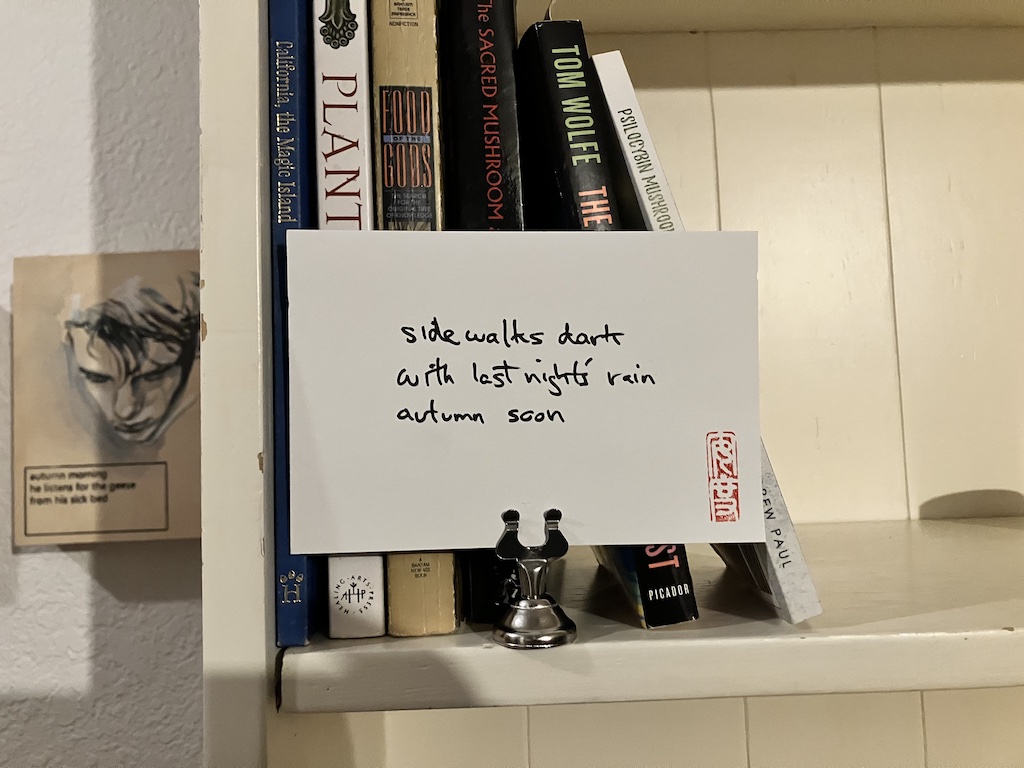 California, the Magic Island
PLANT
NONFICTION
FOOD
OF THE
GODS
THE SEARCH
FOR THE
ORIGINAL TREE
OF KNOWLEDGE
The SACRED MUSHROOM
TOM WOLFE THE
PSILOCYBIN MUSHROO
sidewalks dark
with last nights' rain
autumn soon
autumn morning
he listens for the geese
from his sick bed
H
HEALING·ARTS·PRESS
BANTAM
NEW AGE
BOOK
ST
PICADOR
REW PAUL